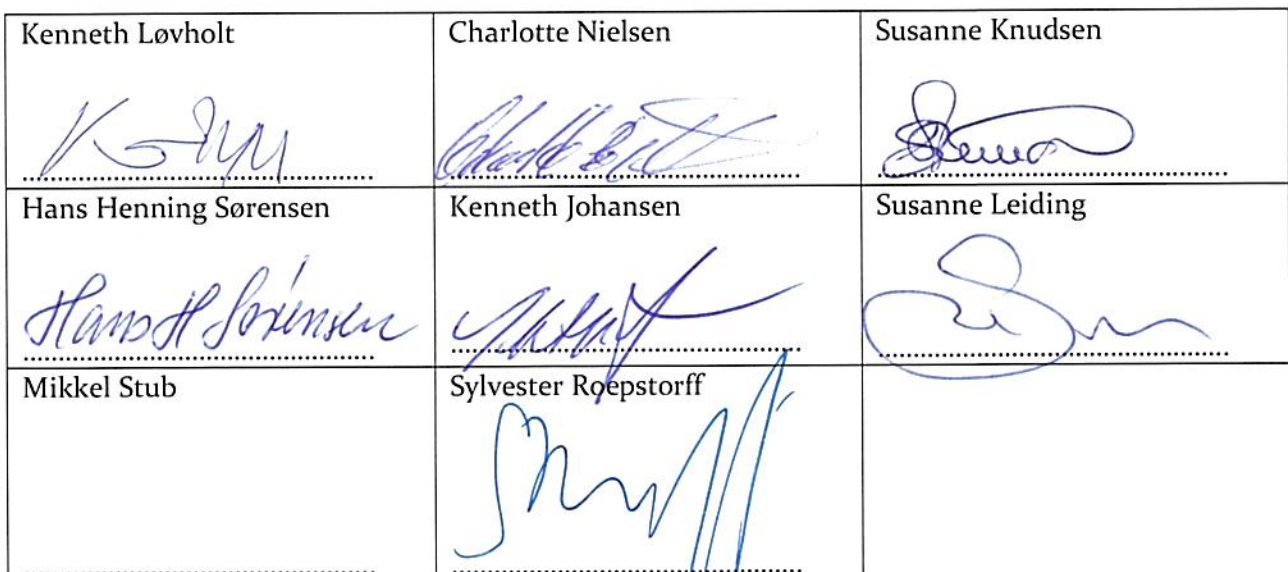 Kenneth Løvholt
Charlotte Nielsen
Susanne Knudsen
Hans Henning Sørensen
Kenneth Johansen
Susanne Leiding
Hans H Sørensen
Mikkel Stub
Sylvester Roepstorff